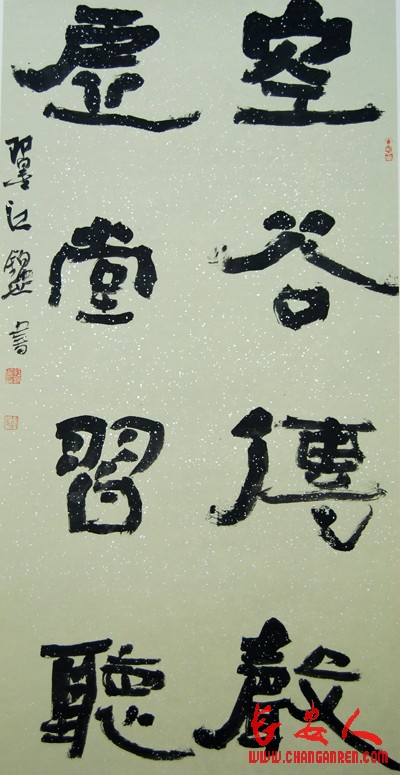 空谷傳聲
虛堂習聽
書
长安人
WWW.CHANGANREN.COM